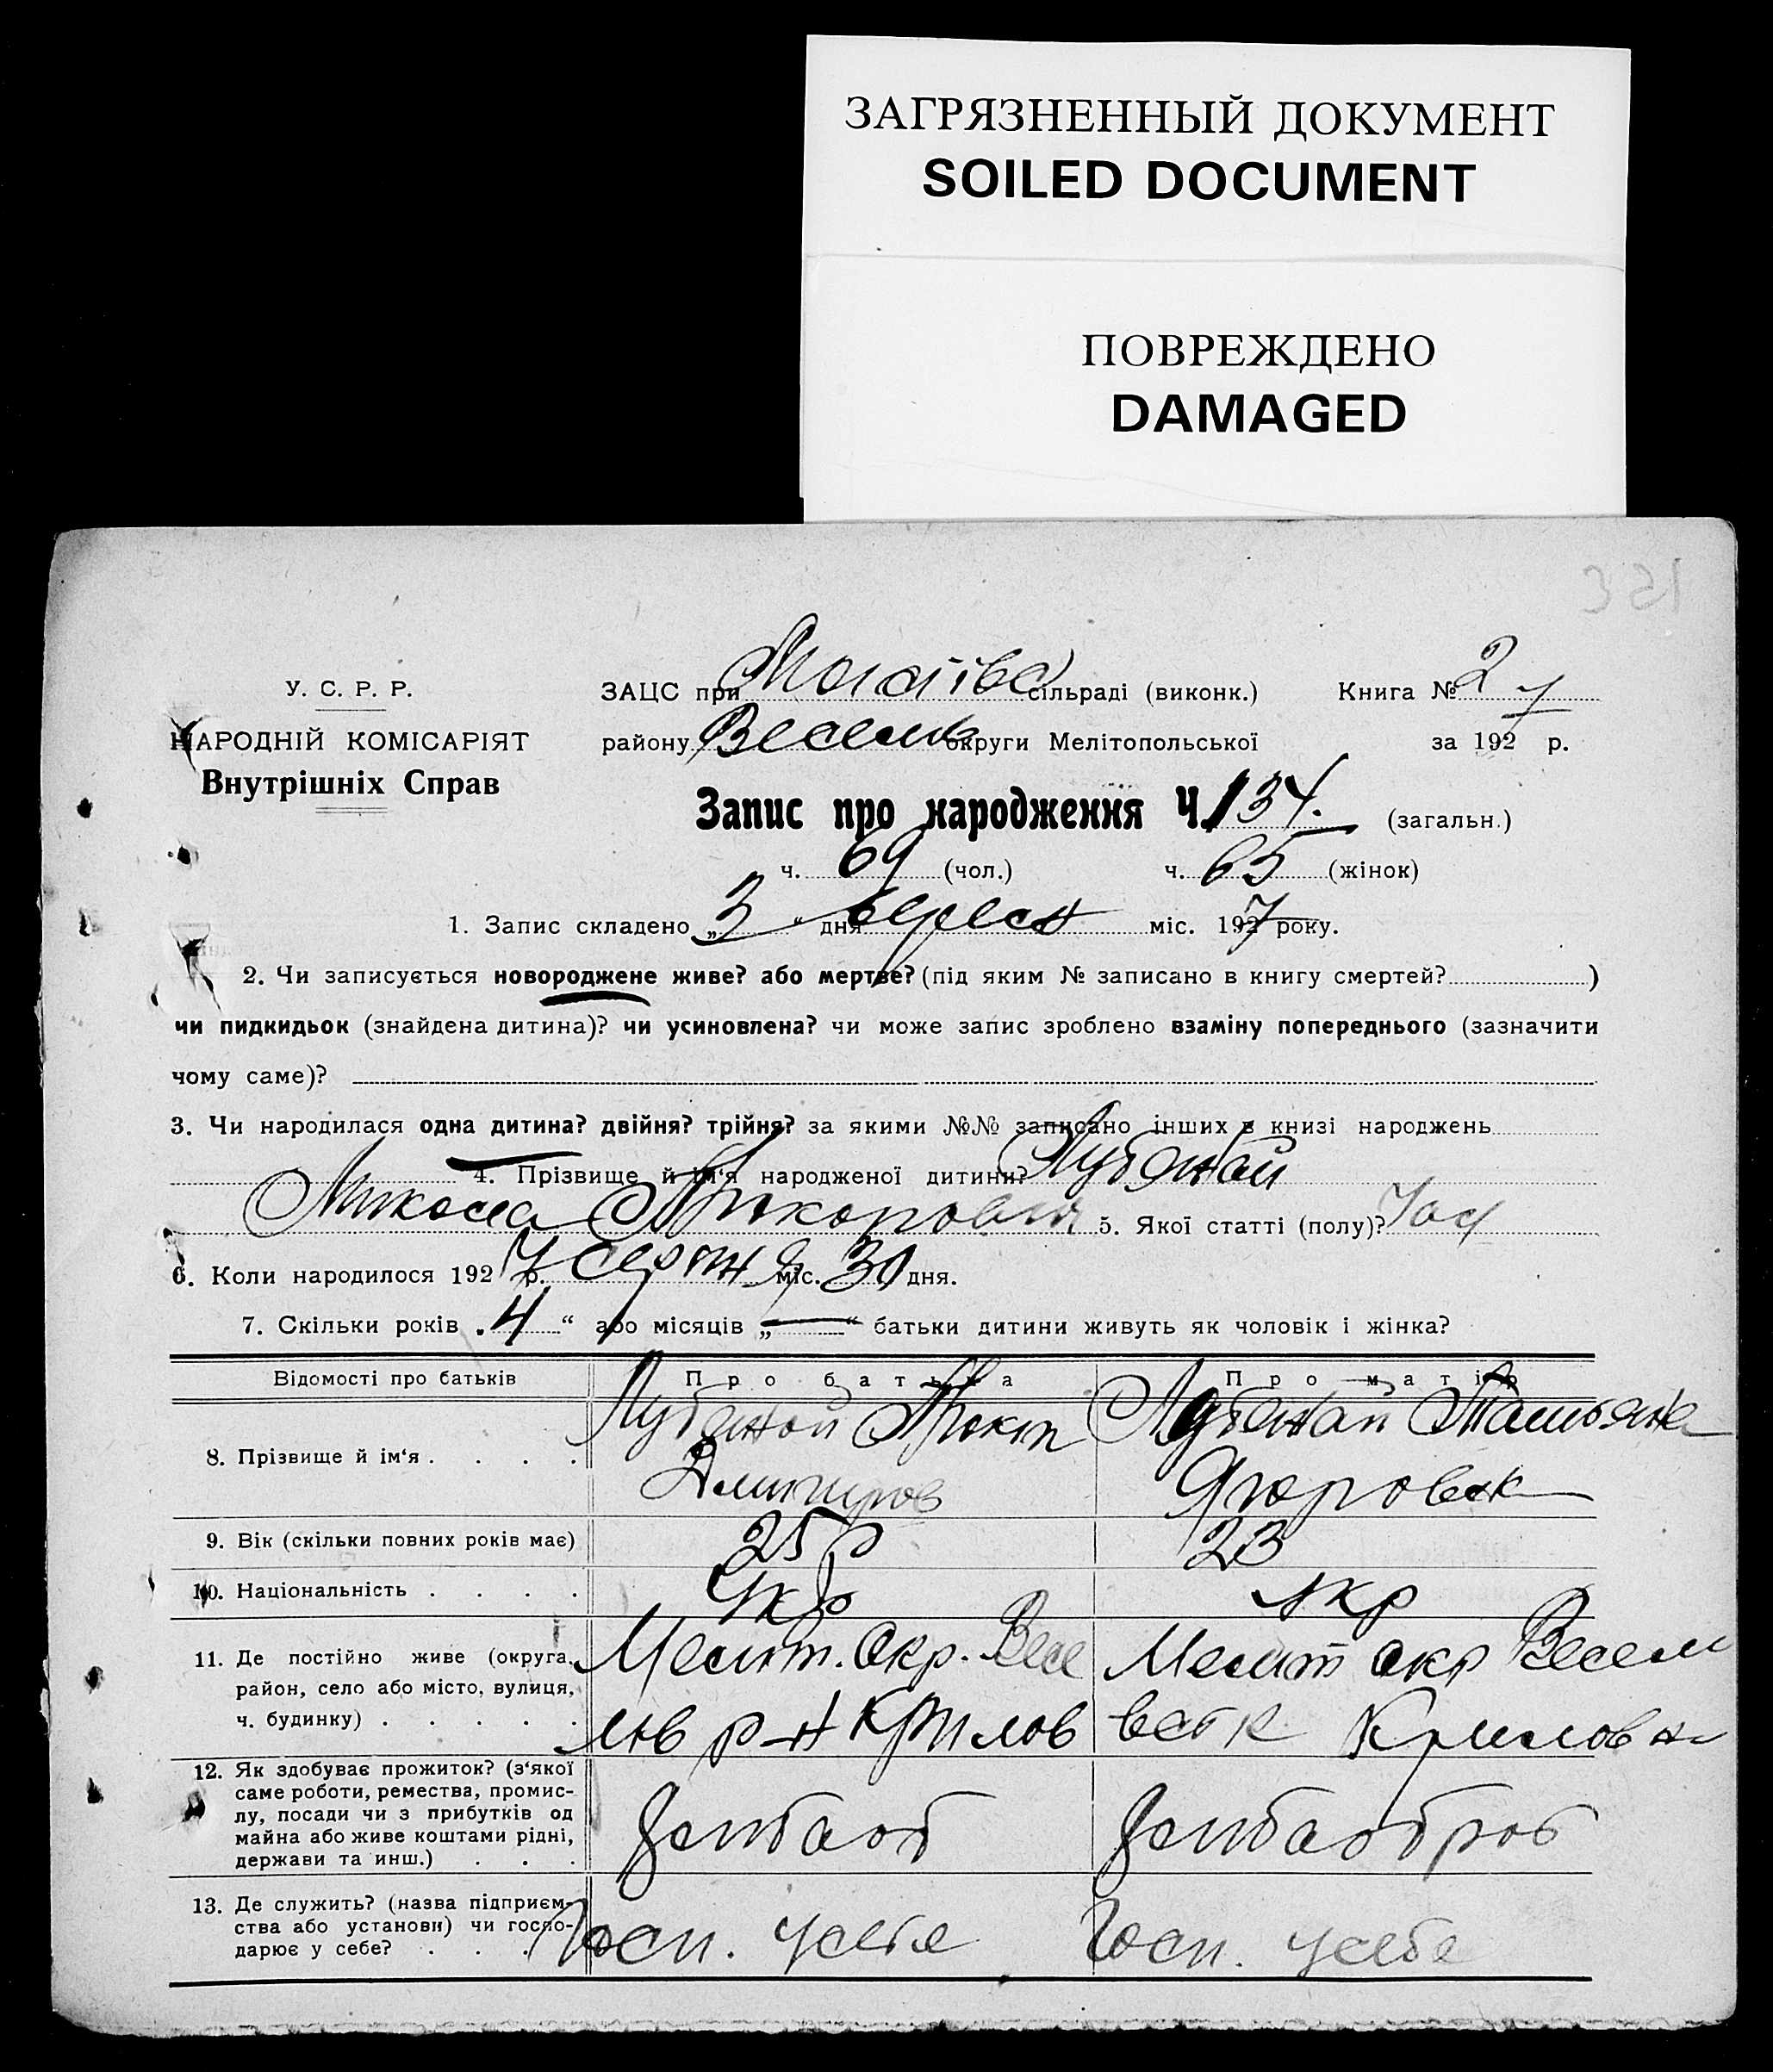 ЗАГРЯЗНЕННЫЙ ДОКУМЕНТ
SOILED DOCUMENT
ПОВРЕЖДЕНО
DAMAGED
351
У. С. Р. Р.
НАРОДНІЙ КОМІСАРІЯТ
Внутрішніх Справ
ЗАЦС при сільраді (виконк.) Книга № 2
району Весели округи Мелітопольської за 1927 р.
Запис про народження Ч. 134. (загальн.)
ч. 69 (чол.) ч. 65 (жінок)
1. Запис складено „3“ дня вересн міс. 1927 року.
2. Чи записується новороджене живе? або мертве? (під яким № записано в книгу смертей? )
чи пидкидьок (знайдена дитина)? чи усиновлена? чи може запис зроблено взаміну попереднього (зазначити
чому саме)?
3. Чи народилася одна дитина? двійня? трійня? за якими №№ записано інших в книзі народжень
4. Прізвище й ім‘я народженої дитини?
Микола Прокопович 5. Якої статті (полу)? Чол
6. Коли народилося 1927 р. серпня міс. 30 дня.
7. Скільки років „4“ або місяців „—“ батьки дитини живуть як чоловік і жінка?
Відомості про батьків Про батька Про матір
8. Прізвище й ім‘я . . . . Прокіп Татьяна
Дмитров
9. Вік (скільки повних років має) 25 р 23
10. Національність . . . . Укр Укр
11. Де постійно живе (округа, район, село або місто, вулиця, ч. будинку) . . . . .
Меліт. Окр. Весе Меліт окр Весели
лів р-н Крилов Крилов
12. Як здобуває прожиток? (з‘якої
саме роботи, ремества, промис-
лу, посади чи з прибутків од
майна або живе коштами рідні,
держави та инш.) . . .
13. Де служить? (назва підприєм-
ства або установи) чи госпо-
дарює у себе? . . .
Госп. у себе Госп. у себе